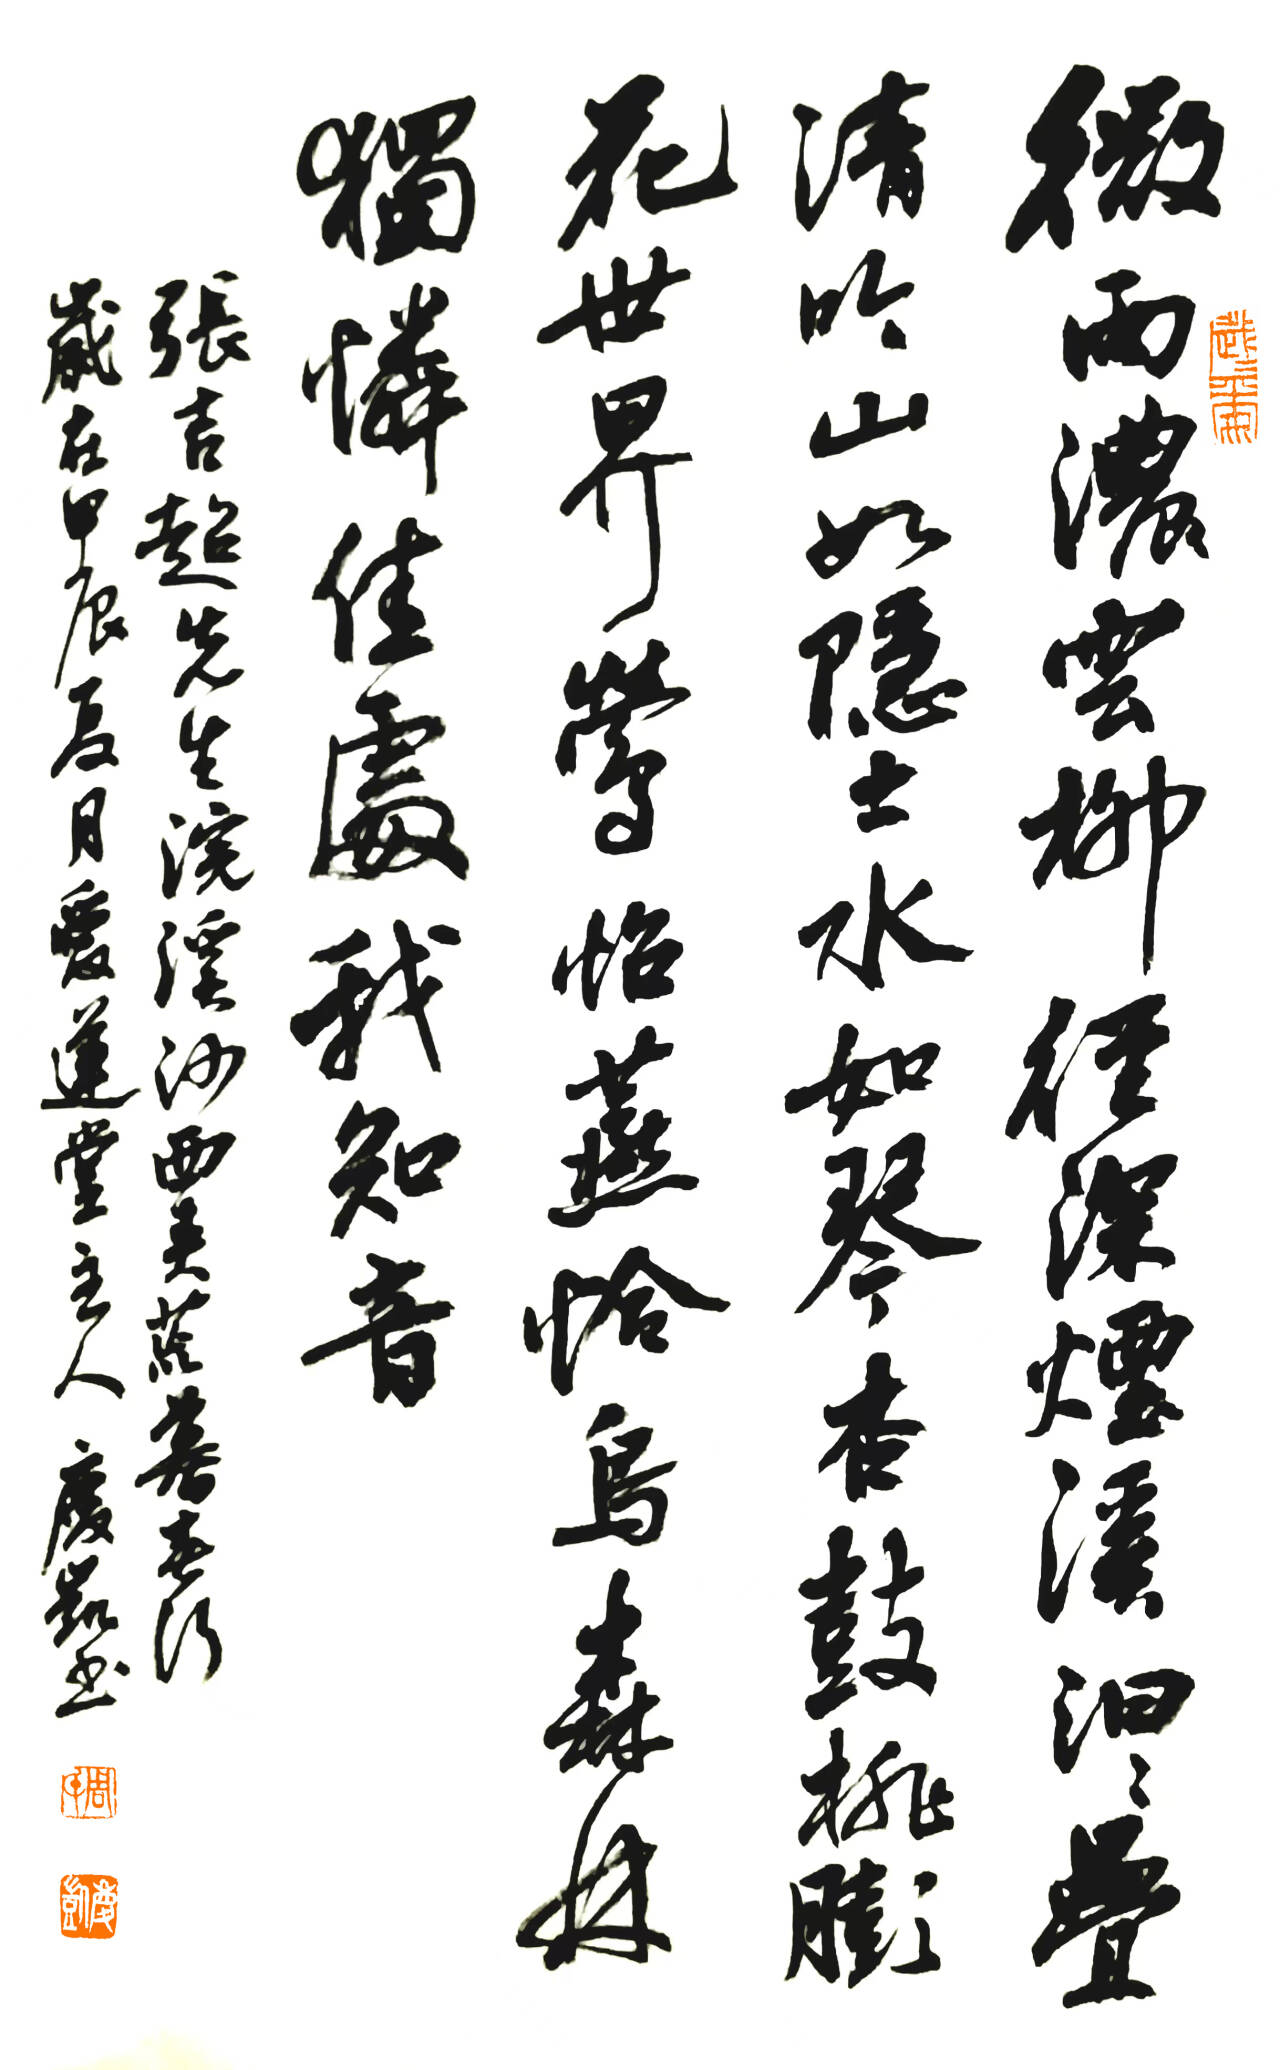 微雨濃雲柳徑深煙溪汩々疊
清吟山如隱士水如琴杏鼓桃膨
花世界鶯怡燕恰鳥森林
獨憐佳處我知音
張吉超先生浣溪沙西夫蓝嘉春行
歲在甲辰夏月愛蓮堂主人慶凱书